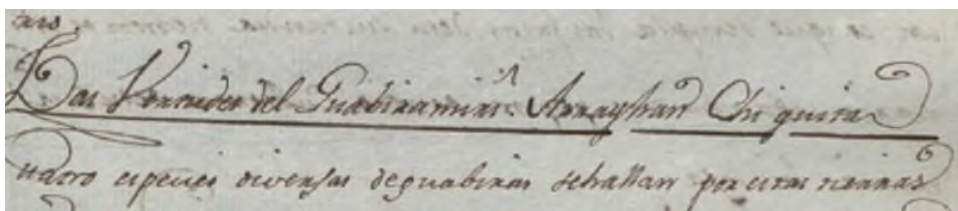 Las Virtudes del Guabiramiri Arrayhan Chiquito
uatro especies diversas de guabiras se hallan por estas tierras